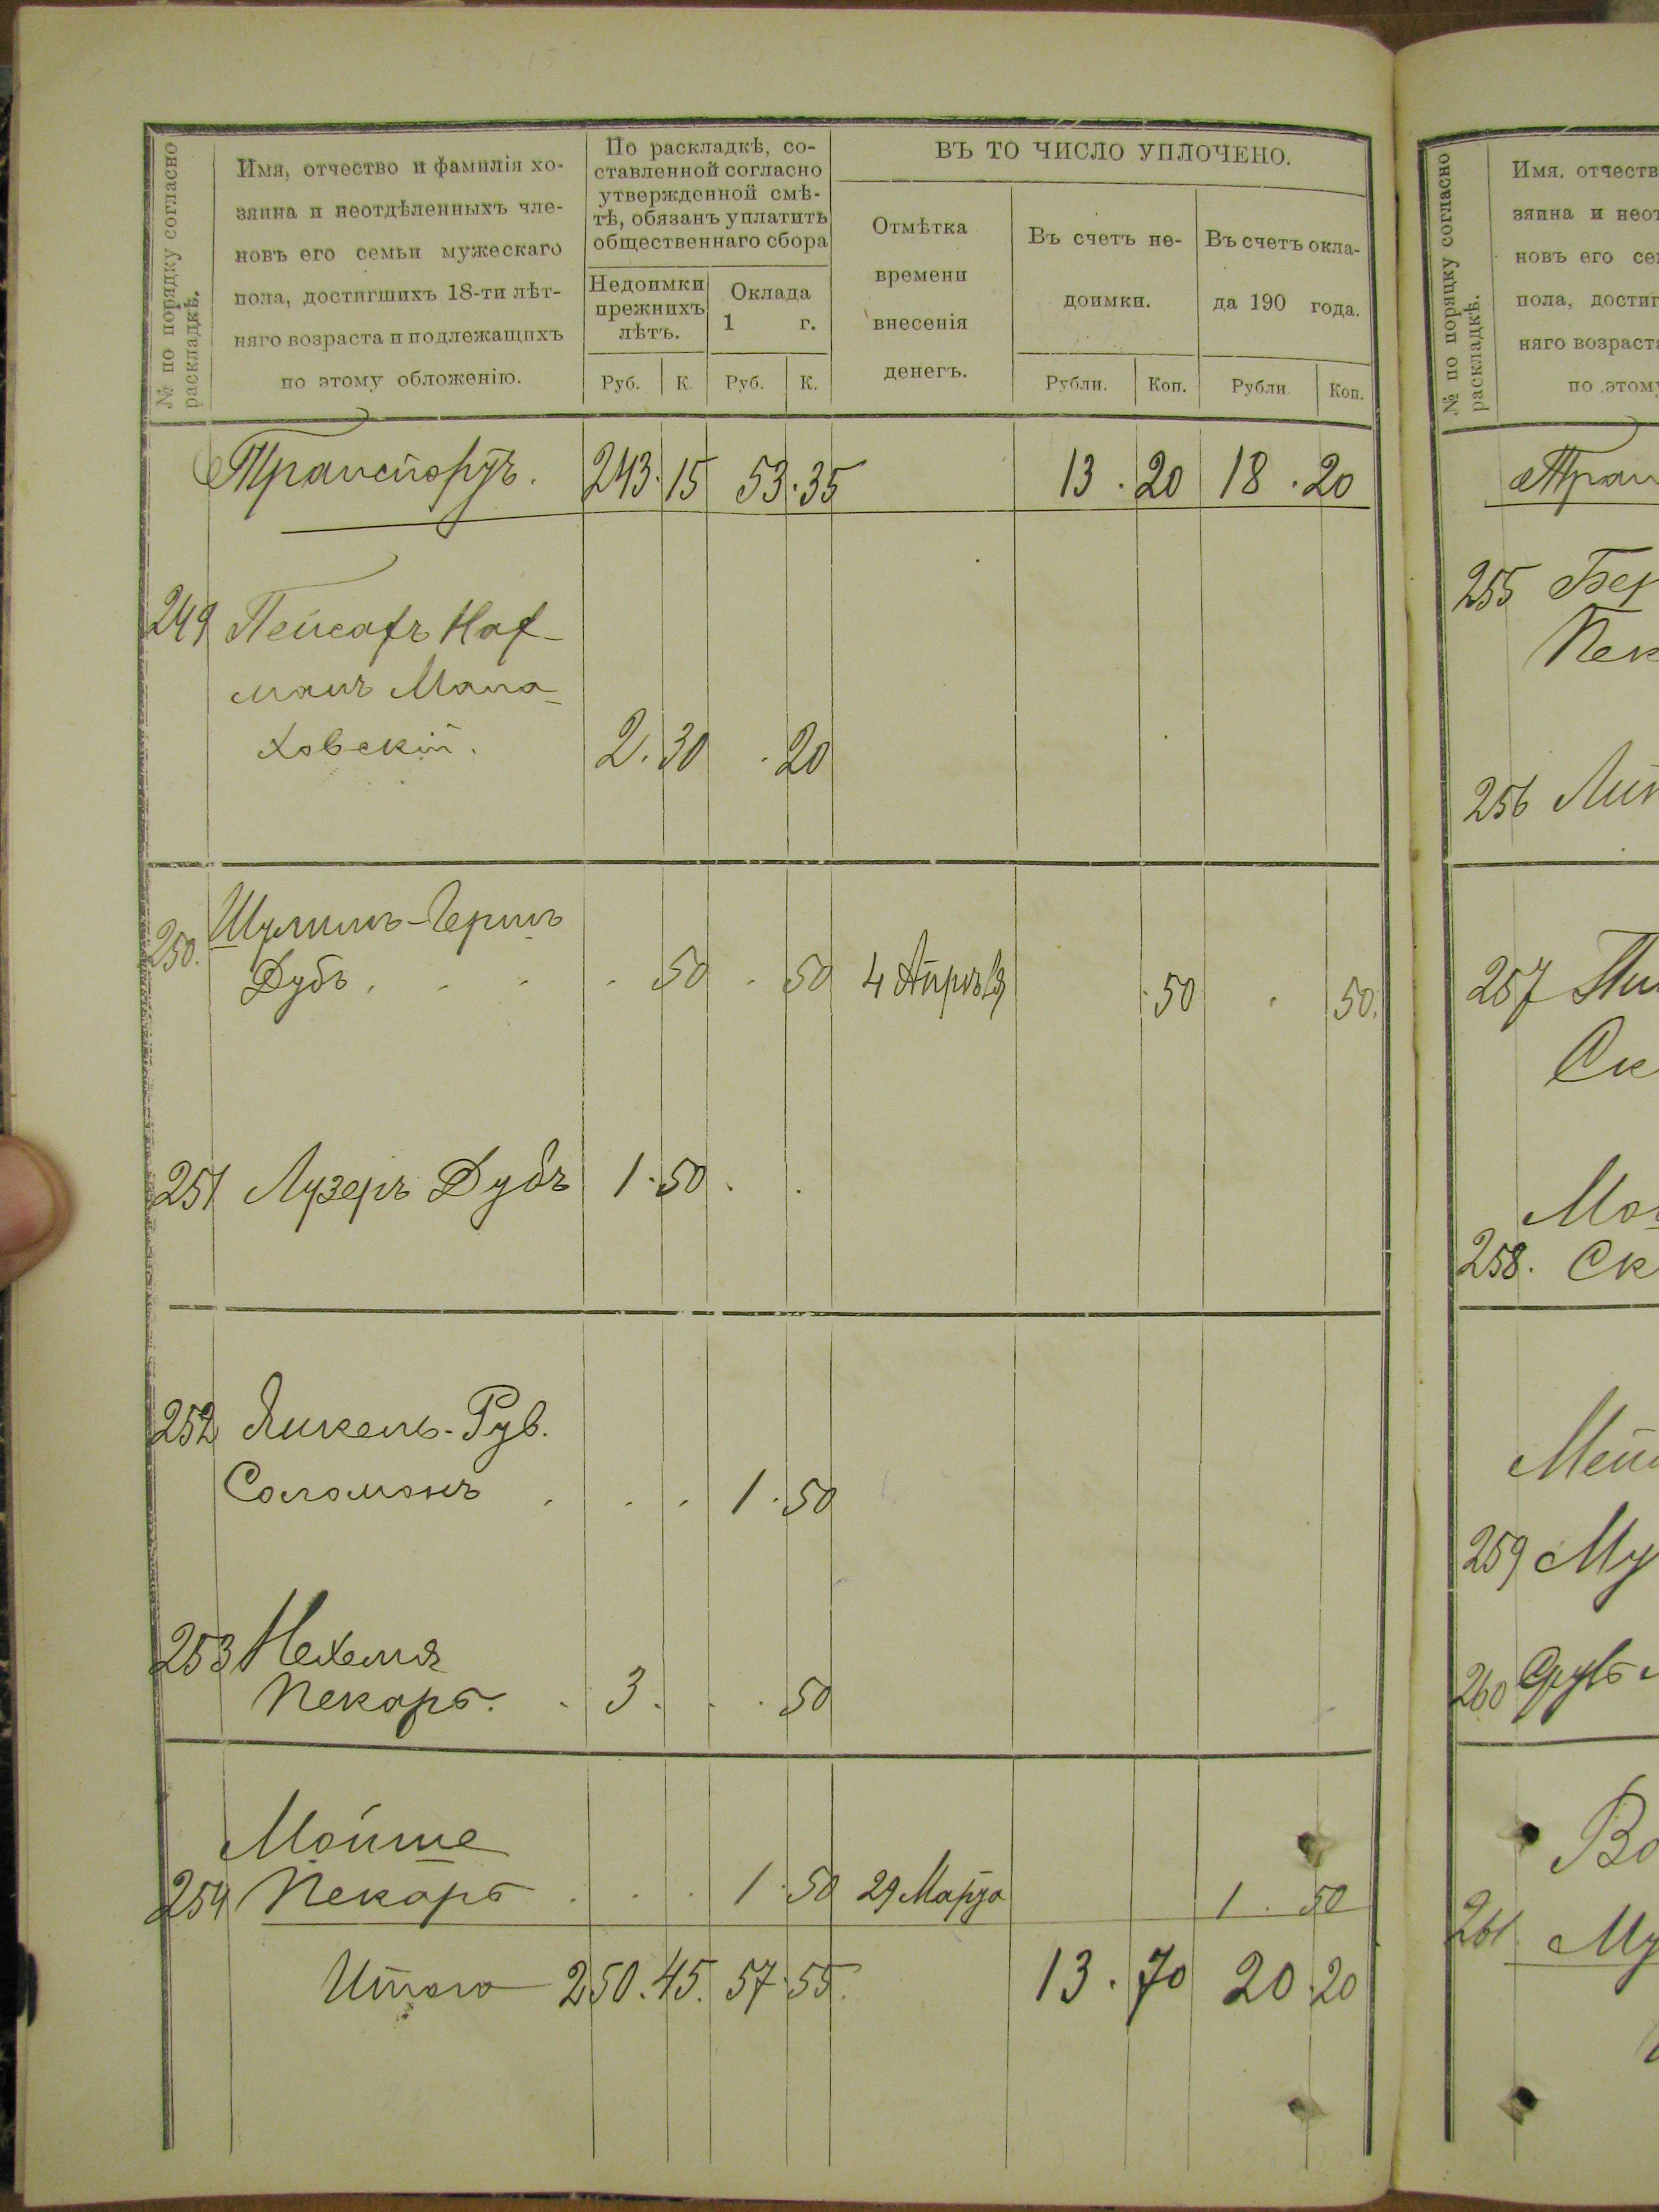 № по порядку согласно
раскладкѣ.
Имя, отчество и фамилія хо-
зяина и неотдѣленныхъ чле-
новъ его семьи мужескаго
пола, достигшихъ 18-ти лѣт-
няго возраста и подлежащихъ
по этому обложенію.
По раскладкѣ, со-
ставленной согласно
утвержденной смѣ-
тѣ, обязанъ уплатить
общественнаго сбора
Недоимки
прежнихъ
лѣтъ.
Оклада
1 г.
Руб. К. Руб. К.
ВЪ ТО ЧИСЛО УПЛОЧЕНО.
Отмѣтка
времени
внесенія
денегъ.
Въ счетъ не-
доимки.
Въ счетъ окла-
да 190 года.
Рубли. Коп. Рубли. Коп.
Транспортъ. 243. 15 53. 35 13. 20 18. 20
249 Пейсахъ Нах-
манъ Мала-
ховскій. 2. 30 . 20
250. Шулимъ-Гершъ
Дубъ . . . . 50 . 50 4 Апрѣля . 50 . 50.
251 Лузеръ Дубъ 1. 50 . .
252 Янкель-Рув.
Соломонъ . . . 1. 50
253 Нехемя
Пекарь. . 3. . . 50
Мойше
254 Пекарь . . . 1. 50 29 Марта 1. 50
Итого 250. 45. 57. 55. 13. 70 20. 20
№ по порядку согласно
раскладкѣ.
Имя, отчеств
зяина и неот
новъ его се
пола, достиг
няго возраст
по этому
Тран
255 Бер
Пек
256
257
Ск
258. Ск
259 Му
260
Во
261. Му